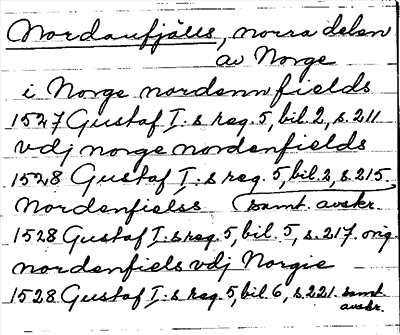 Nordanfjälls, norra delen
av Norge
i Norge nordennfields
1527 Gustaf I:s reg. 5, bil. 2, s. 211
vdj norge nordenfields
1528 Gustaf I:s reg. 5, bil. 3, s. 215,
samt. avskr.
Nordenfielss
1528 Gustaf I:s reg. 5, bil. 5, s. 217. orig.
nordenfiels vdj Norgie
1528 Gustaf I:s reg. 5, bil. 6, s. 221. samt.
avskr.